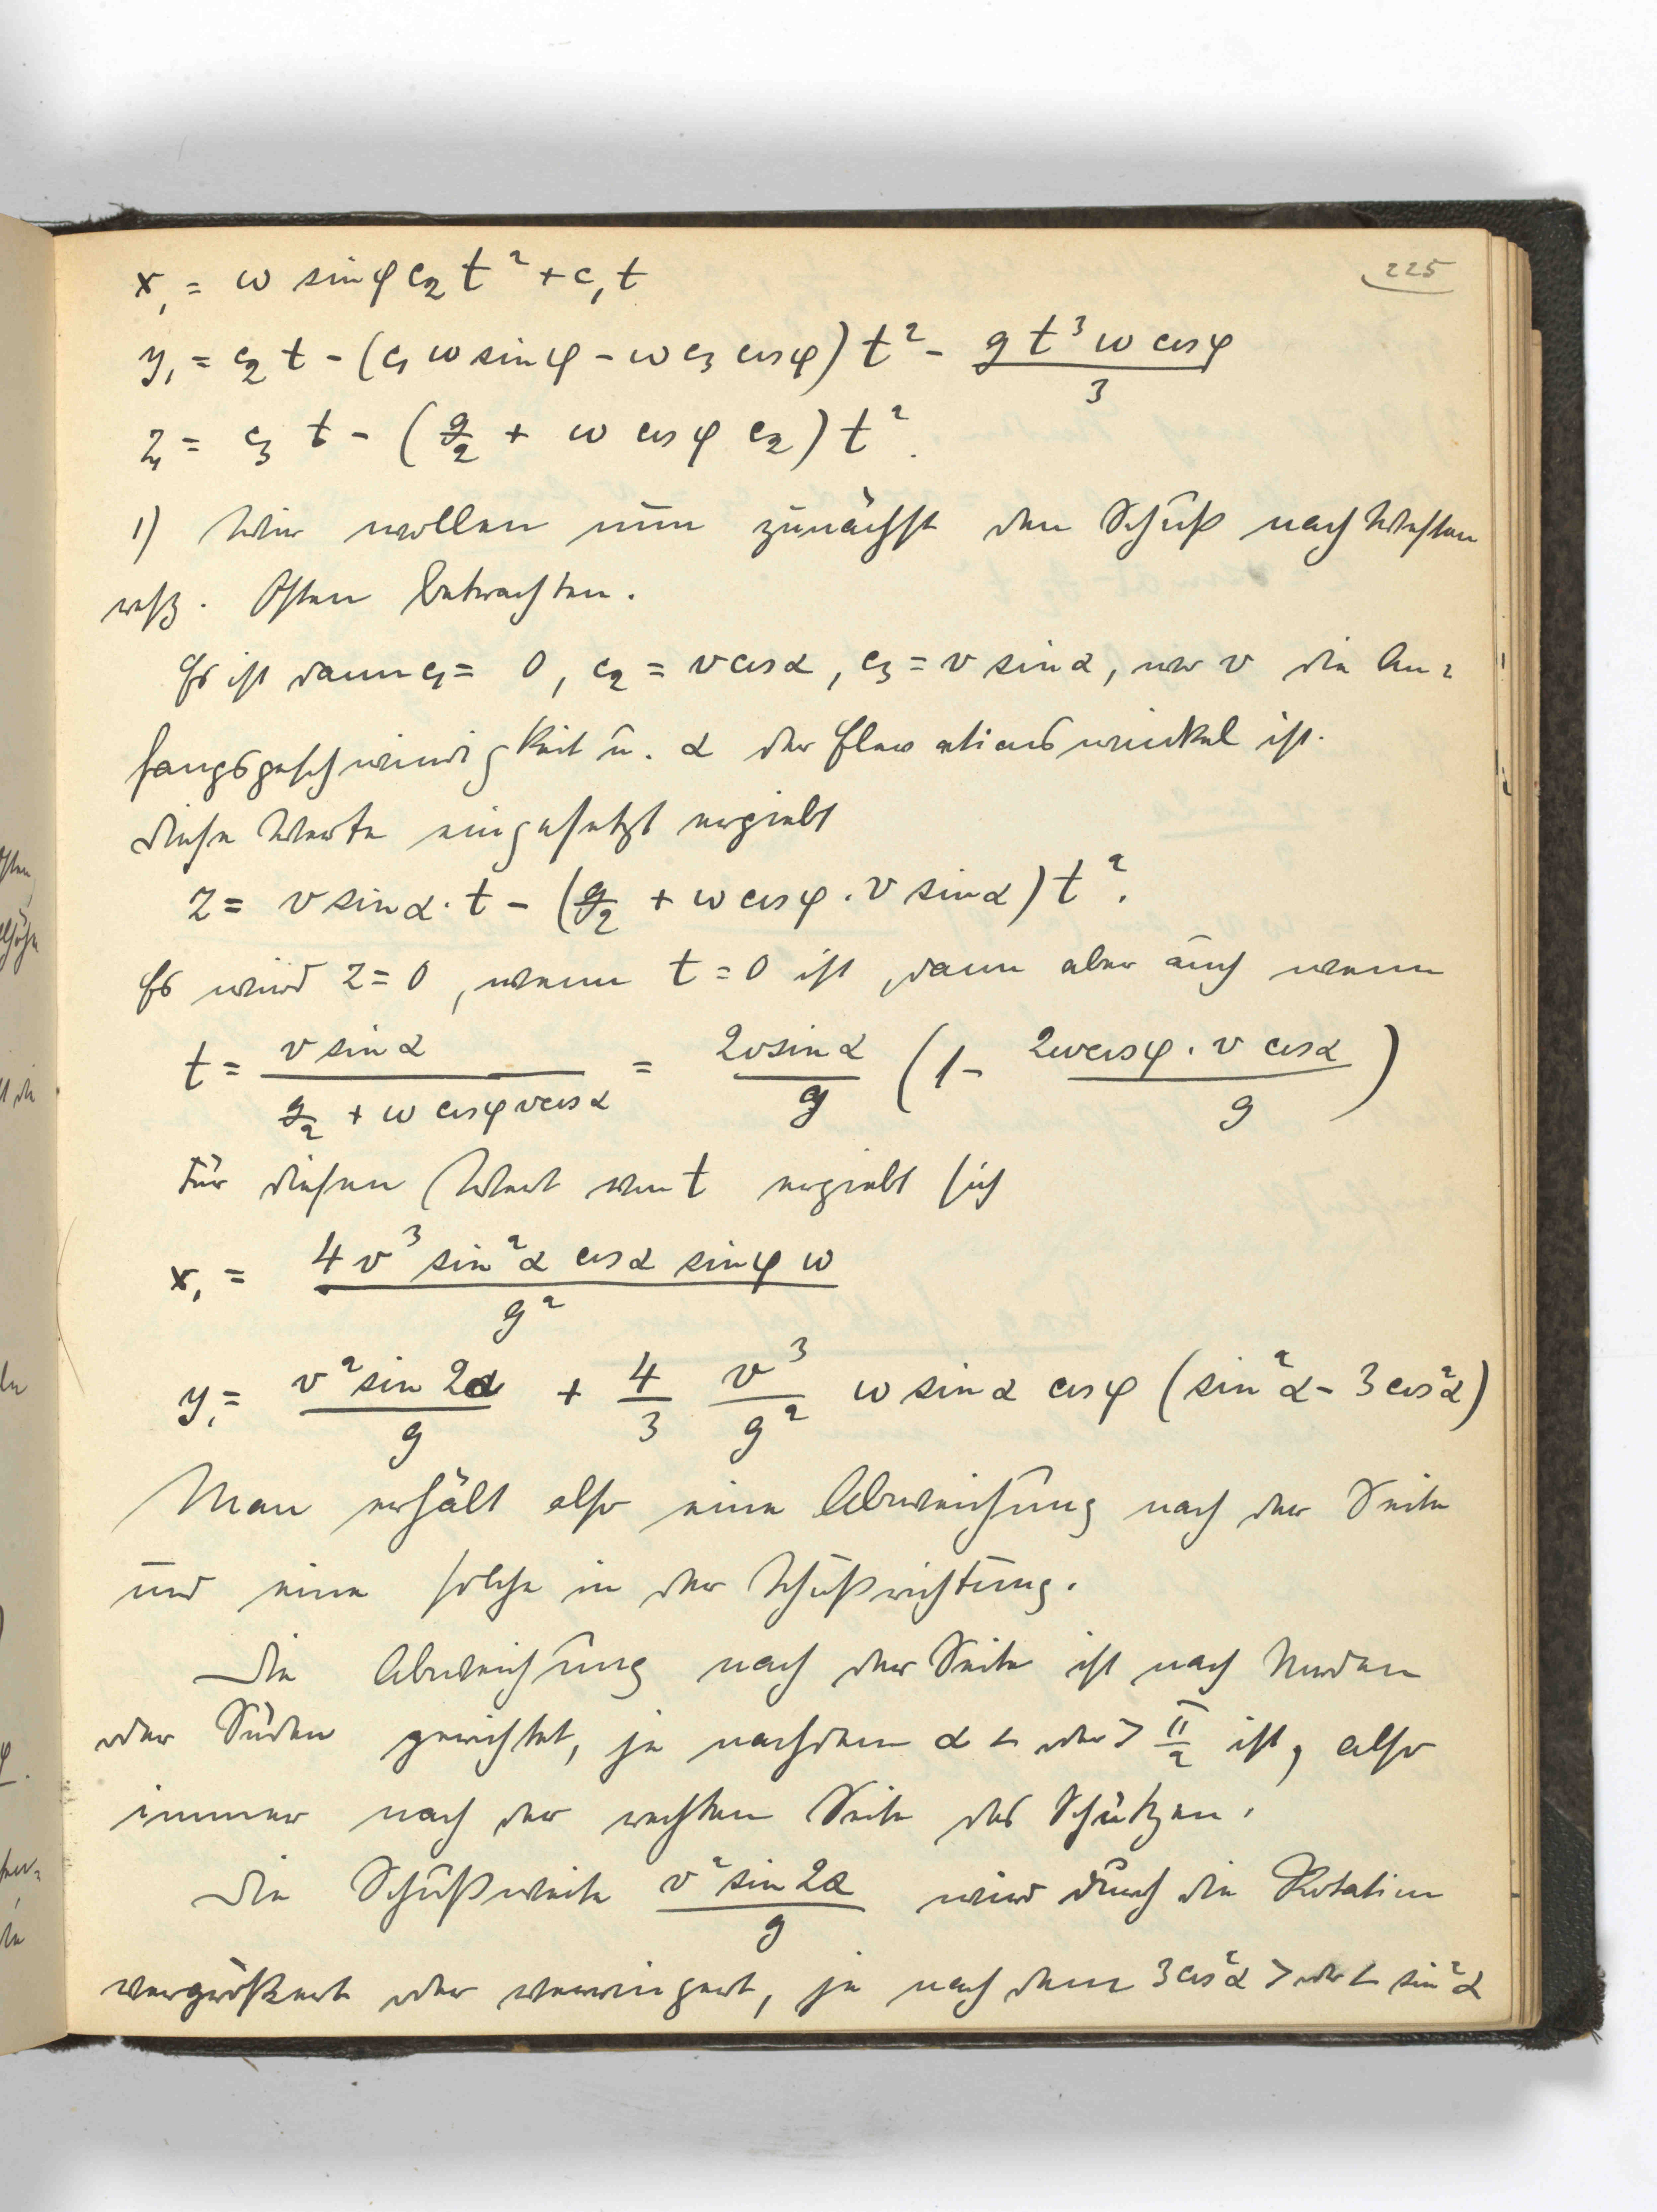 225
x₁ = ω sinφ c₂ t² + c₁ t
y₁ = c₂ t - (c₁ ω sinφ - ω c₃ cosφ) t² - g t³ ω cosφ / 3
z₁ = c₃ t - (g/2 + ω cosφ c₂) t².
1) Wir wollen nun zunächst den Schuß nach Westen
resp. Osten betrachten.
Es ist dann c₁ = 0, c₂ = v cosα, c₃ = v sinα, wo v die An=
fangsgeschwindigkeit u. α der Elevationswinkel ist.
Diese Werte eingesetzt ergiebt
z = v sinα · t - (g/2 + ω cosφ . v sinα) t².
Es wird z = 0, wenn t = 0 ist, dann aber auch wenn
t = v sinα / (g/2 + ω cosφ v cosα) = 2v sinα / g (1 - 2ω cosφ . v cosα / g)
Für diesen Wert von t ergiebt sich
x₁ = 4 v³ sin²α cosα sinφ ω / g²
y₁ = v² sin 2α / g + 4/3 v³/g² ω sinα cosφ (sin²α - 3 cos²α)
Man erhält also eine Abweichung nach der Seite
und eine solche in der Schußrichtung.
Die Abweichung nach der Seite ist nach Norden
oder Süden gerichtet, je nachdem α < oder > π/2 ist, also
immer nach der rechten Seite des Schützen.
Die Schußweite v² sin 2α / g wird durch die Rotation
vergrößert oder verringert, je nachdem 3 cos²α > oder < sin²α